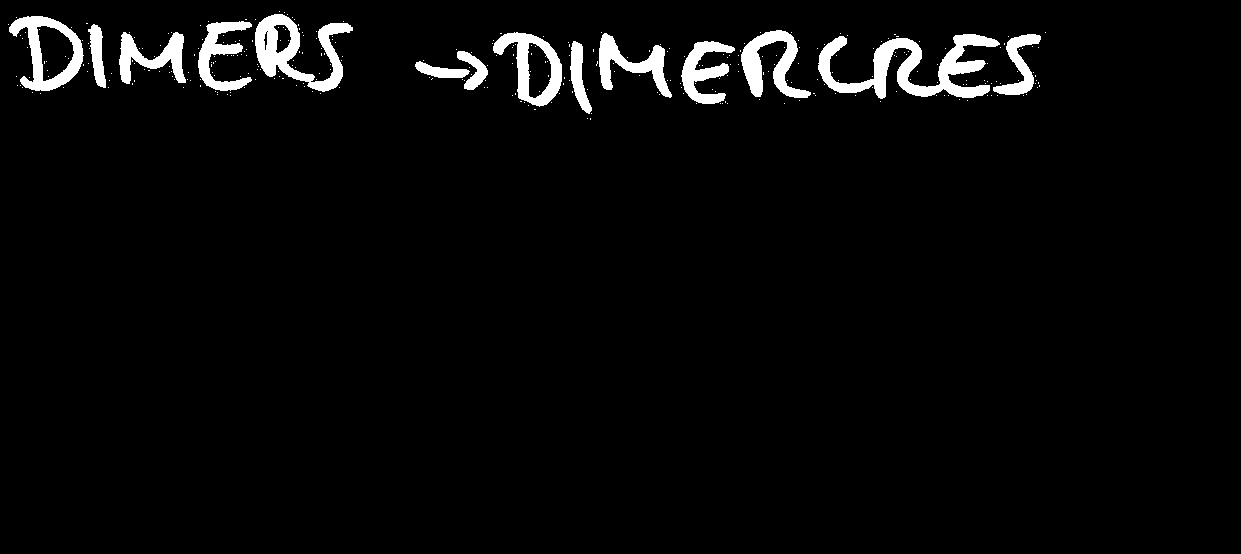 DIMERS → DIMERCRES